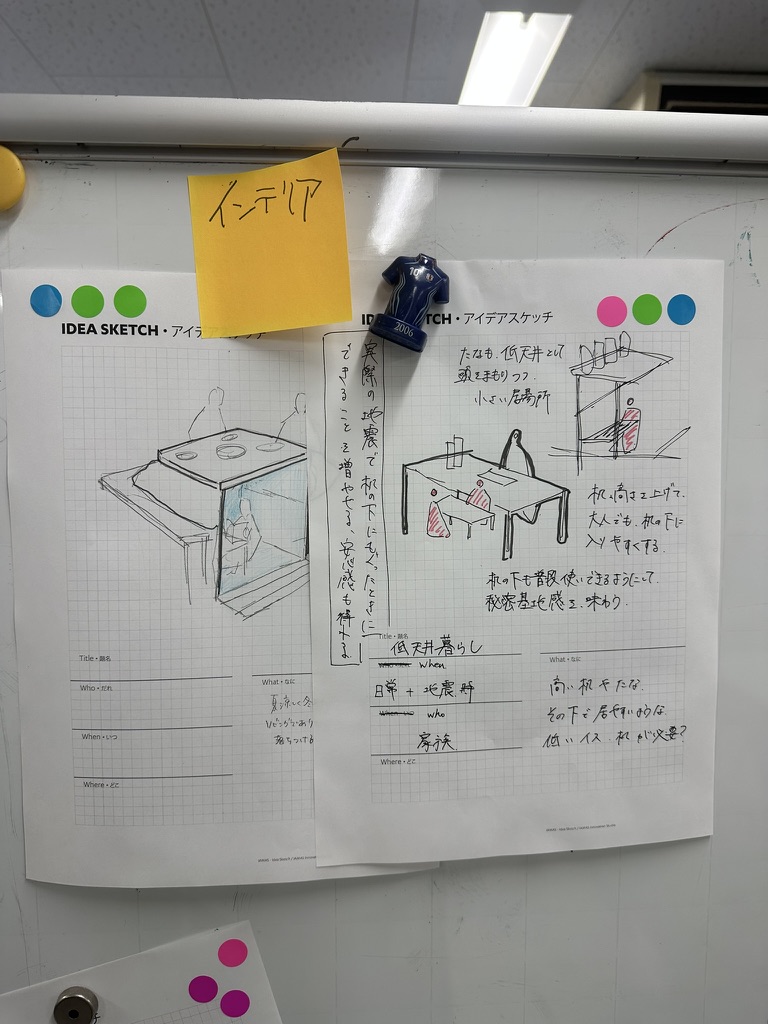 インテリア
10
2006
IDEA SKETCH・アイデ
Title・題名
Who・だれ
When・いつ
Where・どこ
What・なに
SKETCH・アイデアスケッチ
実際の地震で机の下にもぐったときに
できることを増やせる、安心感も得れる。
たなも、低天井として
頭をまもりつつ、
小さい居場所
机の高さを上げて、
大人でも、机の下に
入りやすくする。
机の下も普段使いできるようにして、
秘密基地感を、味わう。
Title・題名
低天井暮らし
when
日常 + 地震時
who
家族
Where・どこ
What・なに
高い机やたな、
その下で居やすいような、
低いイス、机が必要?